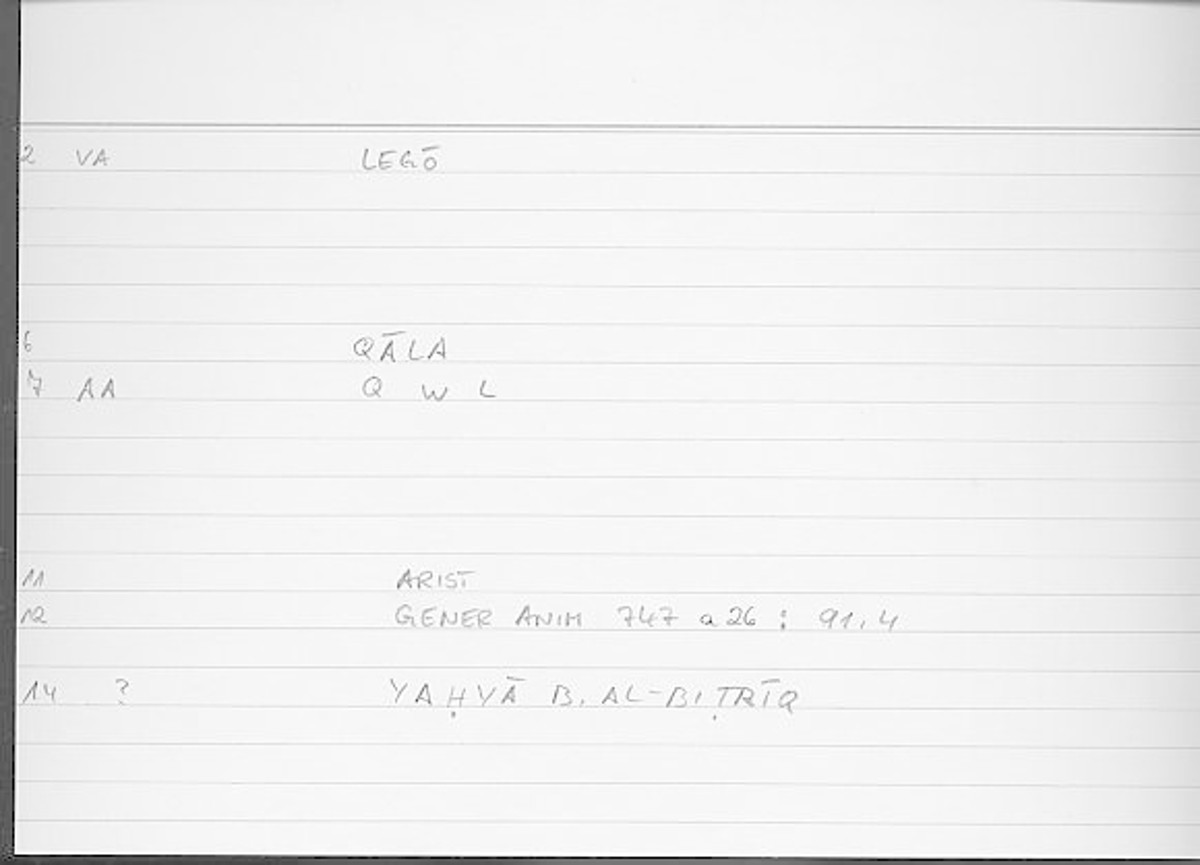 2 VA LEGŌ
6 QĀLA
7 AA Q W L
11 ARIST
12 GENER ANIM 747 a 26 : 91,4
14 ? YAḤYĀ B. AL-BIṬRĪQ